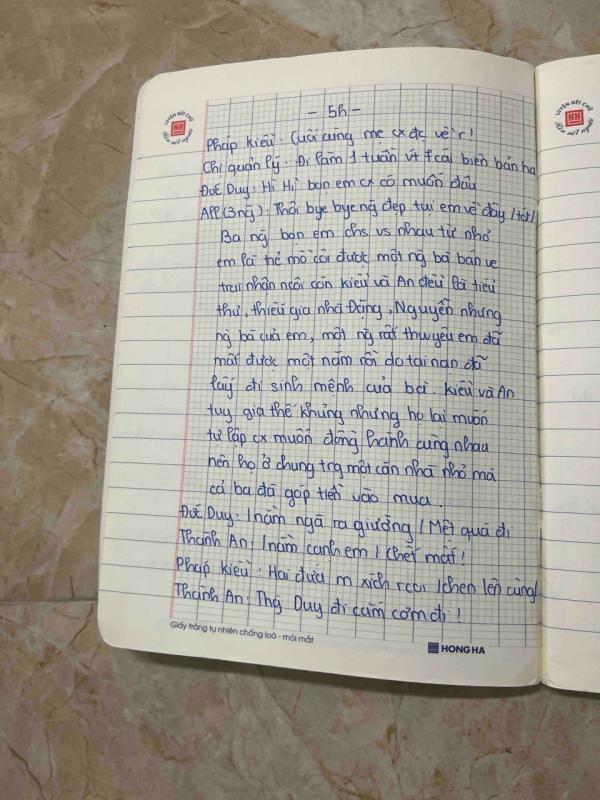 - 5h -
Pháp kiều: Cuối cùng me cx đc về r!
Chị quản lý: Đi làm 1 tuần vt fcái biên bản ha
Đức Duy: Hì Hì bọn em cx có muốn đâu
All (3ng): Thôi bye bye ng đẹp tụi em về đây /tót/
Ba ng bọn em chs vs nhau từ nhỏ
em là trẻ mồ côi được một ng bà bán ve
trai nhận nuôi còn kiều và An đều là tiểu
thư, thiếu gia nhà Đặng, Nguyễn nhưng
ng bà của em, một ng rất thw yêu em đã
mất được một năm rồi do tai nạn đã
lấy đi sinh mệnh của bà. kiều và An
tuy gia thế khủng nhưng họ lại muốn
tự lập cx muốn đồng hành cùng nhau
nên họ ở chung trg một căn nhà nhỏ mà
cả ba đã góp tiền vào mua.
Đức Duy: /nằm ngã ra giường/ Mệt quá đi
Thành An: /nằm cạnh em/ chết mất!
Pháp kiều: Hai đứa m xích rcoi /chen lên cùng/
Thành An: Thg Duy đi cắm cơm đi!
Giấy trắng tự nhiên chống loá - mỏi mắt
HONG HA
LUYỆN NÉT CHỮ